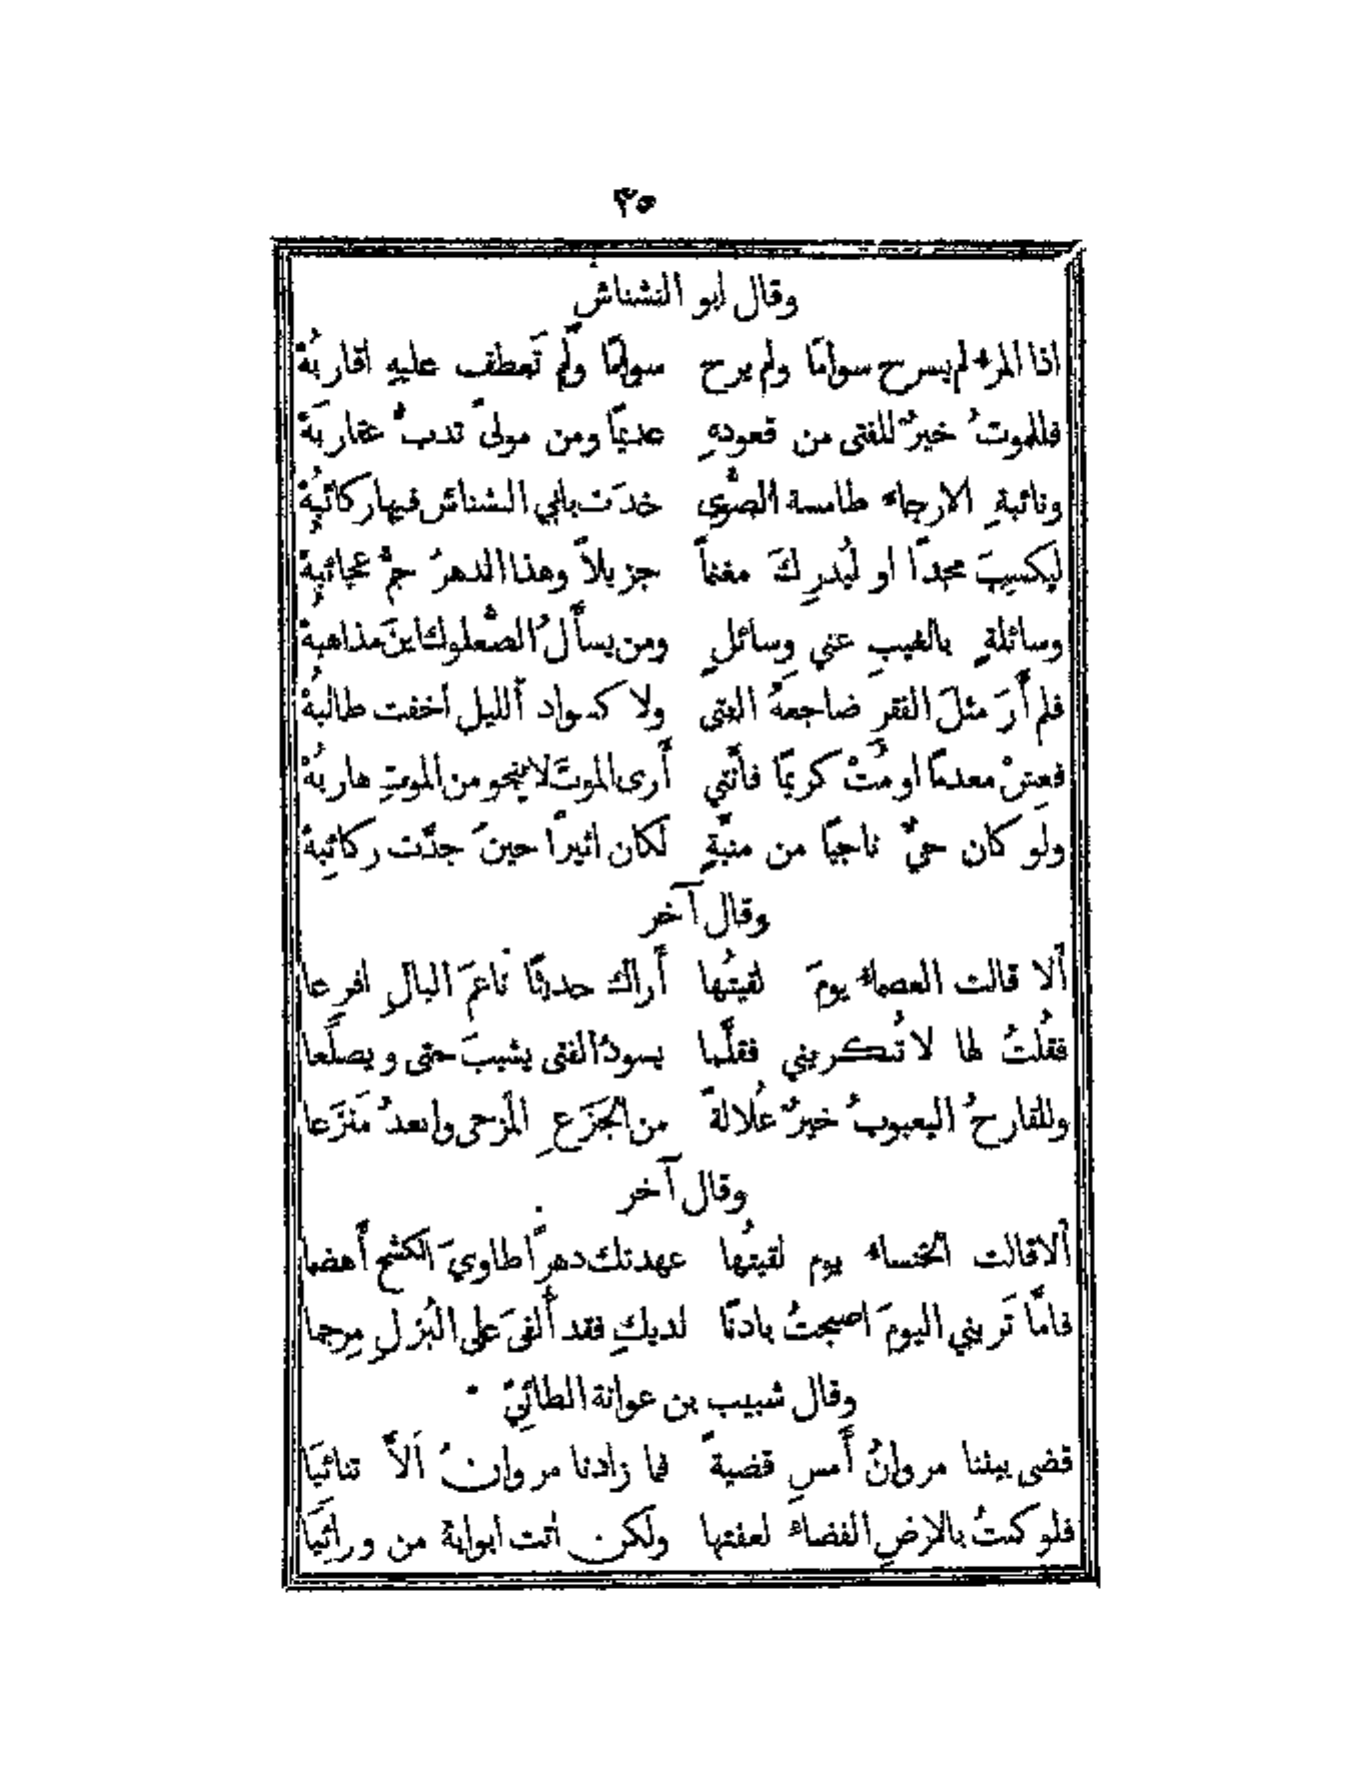 ٣٥
وقال ابو النشناش
اذا المرء لم يسرح سوامًا ولم يرح سوامًا ولم تَعطف عليهِ اقاربُهْ
فللموتُ خيرٌ للفتى من قعودهِ عديمًا ومن مولىً تدبُّ عقاربَهْ
ونائيةِ الارجاء طامسة الصُّوى خدَت بابي النشناش فيها ركائبُهْ
ليكسِبَ مجدًا او ليُدرِكَ مغنمًا جزيلاً وهذا الدهرُ جمٌّ عجائبهْ
وسائلةٍ بالغيبِ عني وسائلٍ ومن يسأَلُ الصُّعلوك اينَ مذاهبهْ
فلم أَرَ مثلَ الفقرِ ضاجعهُ الفتى ولا كسواد الليل اخفت طالبُهْ
فعشْ معدمًا او مُتْ كريمًا فأنَّني أَرى الموتَ لا ينجو من الموتِ هاربُهْ
ولَو كان حيٌّ ناجيًا من منيَّةٍ لكان اثيرًا حينَ جدَّت ركائبِهْ
وقال آخر
ألا قالت العصماء يومَ لقيتُها أَراك حديثًا ناعمَ البالِ افرعا
فقُلتُ لها لا تُنكريني فقلَّما يسودُ الفتى يشيبَ حتى ويصلَعا
وللقارحُ اليعبوبُ خيرٌ عُلالةً من الجَزَعِ المُزجى وابعدُ مَنزَعا
وقال آخر
ألا قالت الخنساء يوم لقيتُها عهدتك دهرًا طاويَ الكشح أَهضما
فامَّا تَريني اليومَ اصبحتُ بادنًا لديكِ فقد أُلفىَ على البُزلِ مِرجما
وقال شبيب بن عوانة الطائيّ
قضى بيننا مروانُ أَمسِ قضيةً فما زادنا مروانُ اَلاَّ تنائيَا
فلو كنتُ بالارضِ الفضاء لعفتها ولكن اتت ابوابهُ من ورائِيَا